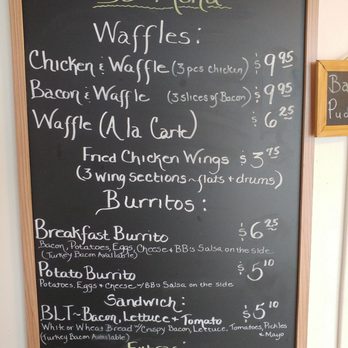 Menu
Waffles:
Chicken & Waffle (3 pcs chicken) $9.95
Bacon & Waffle (3 slices of Bacon) $9.95
Waffle (A la Carte) $6.25
Fried Chicken Wings $3.75
(3 wing sections ~ flats + drums)
Burritos:
Breakfast Burrito $6.25
Bacon, Potatoes, Eggs, Cheese + BB's Salsa on the side
(Turkey Bacon Available)
Potato Burrito $5.10
Potatoes, Eggs + Cheese w/ BB's Salsa on the side
Sandwich:
BLT ~ Bacon, Lettuce + Tomato $5.10
White or Wheat Bread w/ Crispy Bacon, Lettuce, Tomatoes, Pickles + Mayo
(Turkey Bacon Available)
Ba
Pud